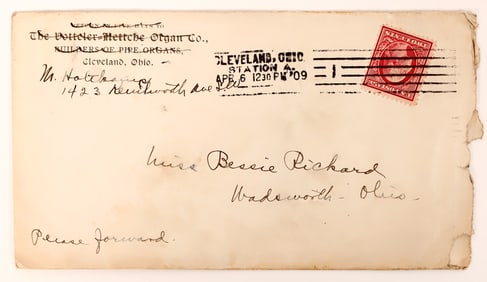 The Votteler-Hettche Organ Co.,
BUILDERS OF PIPE ORGANS,
Cleveland, Ohio.
1423 Kenilworth Ave S.W.
CLEVELAND, OHIO.
STATION A.
APR 6 12 30 PM '09
1
Miss Bessie Rickard
Wadsworth - Ohio -
Please forward.